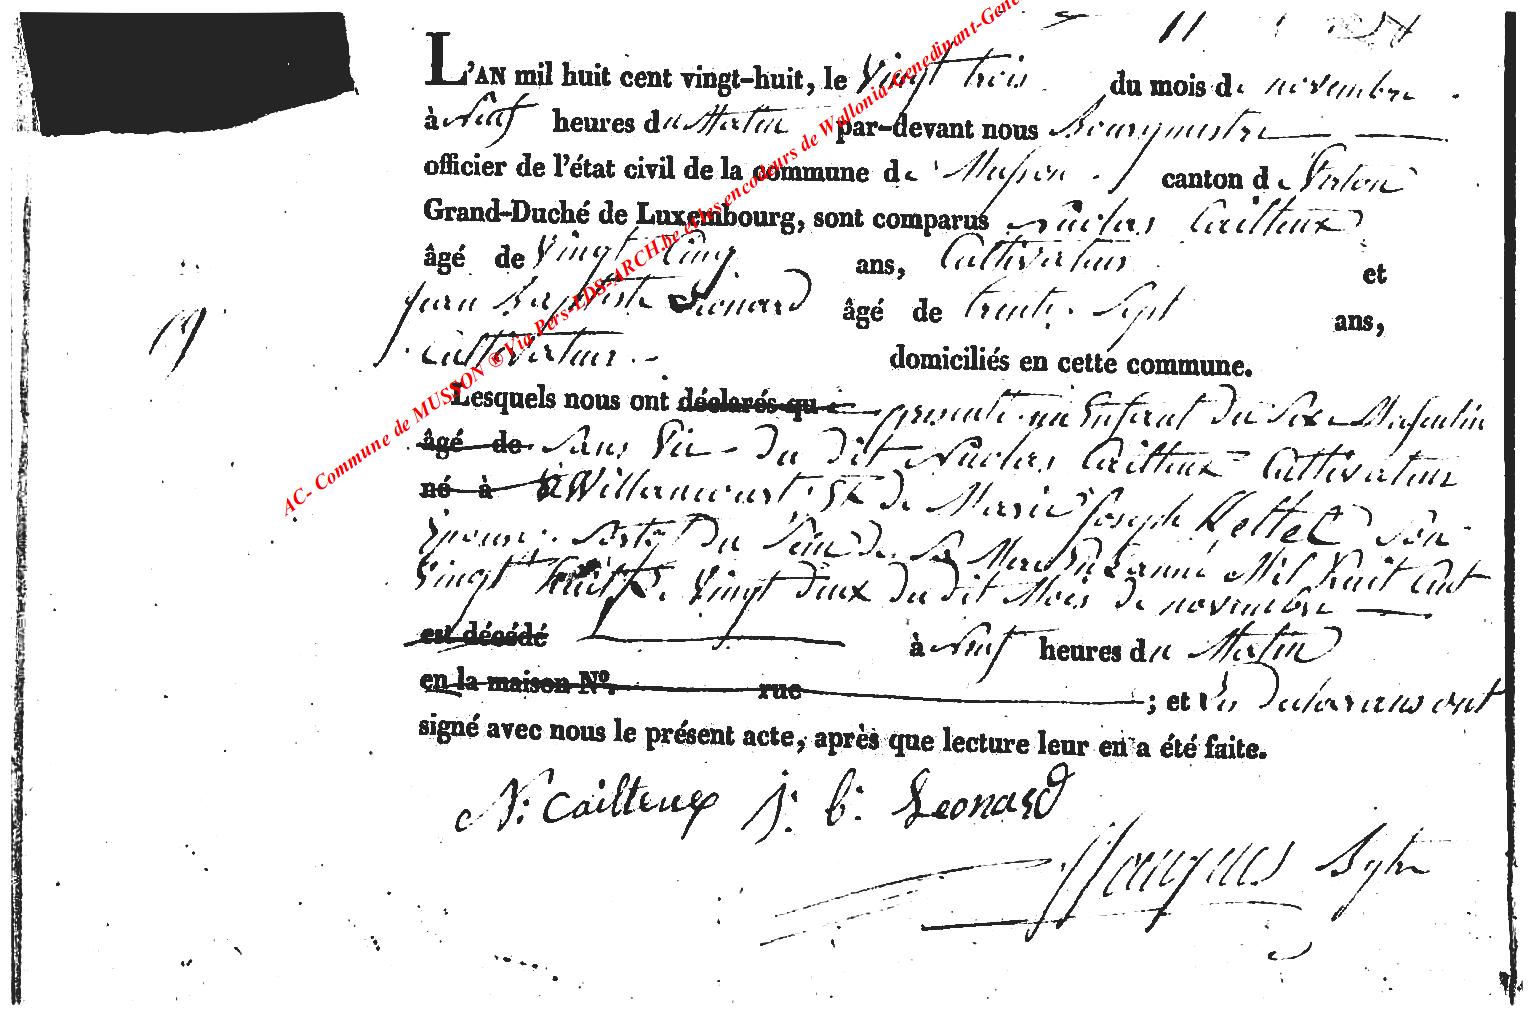 L'AN mil huit cent vingt-huit, le Vingt trois du mois de novembre
à Neuf heures du Matin par-devant nous Bourgmestre
officier de l'état civil de la commune de Musson canton de Virton
Grand-Duché de Luxembourg, sont comparus Nicolas Cailteux
âgé de Vingt Cinq ans, Cultivateur et
Jean Baptiste Léonard âgé de trente Sept ans,
19
Cultivateur domiciliés en cette commune.
Lesquels nous ont déclarés que présenté un Enfant du Sexe Masculin
âgé de Sans Vie du dit Nicolas Cailteux Cultivateur
né à à Willancourt et de Marie Joseph Hettel Son
Epouse Sortit du Sein de Sa Mere En Lanné Mil Huit Cent
Vingt huit Le Vingt deux du dit Mois de novembre
est décédé à Neuf heures du Matin
en la maison Nº. rue ; et les Declarans ont
signé avec nous le présent acte, après que lecture leur en a été faite.
N: Cailteux J: b: Leonard
AC- Commune de MUSSON ® Via Pers-LDS-ARCH.be et les encodeurs de Wallonia-Genedinant-Gene